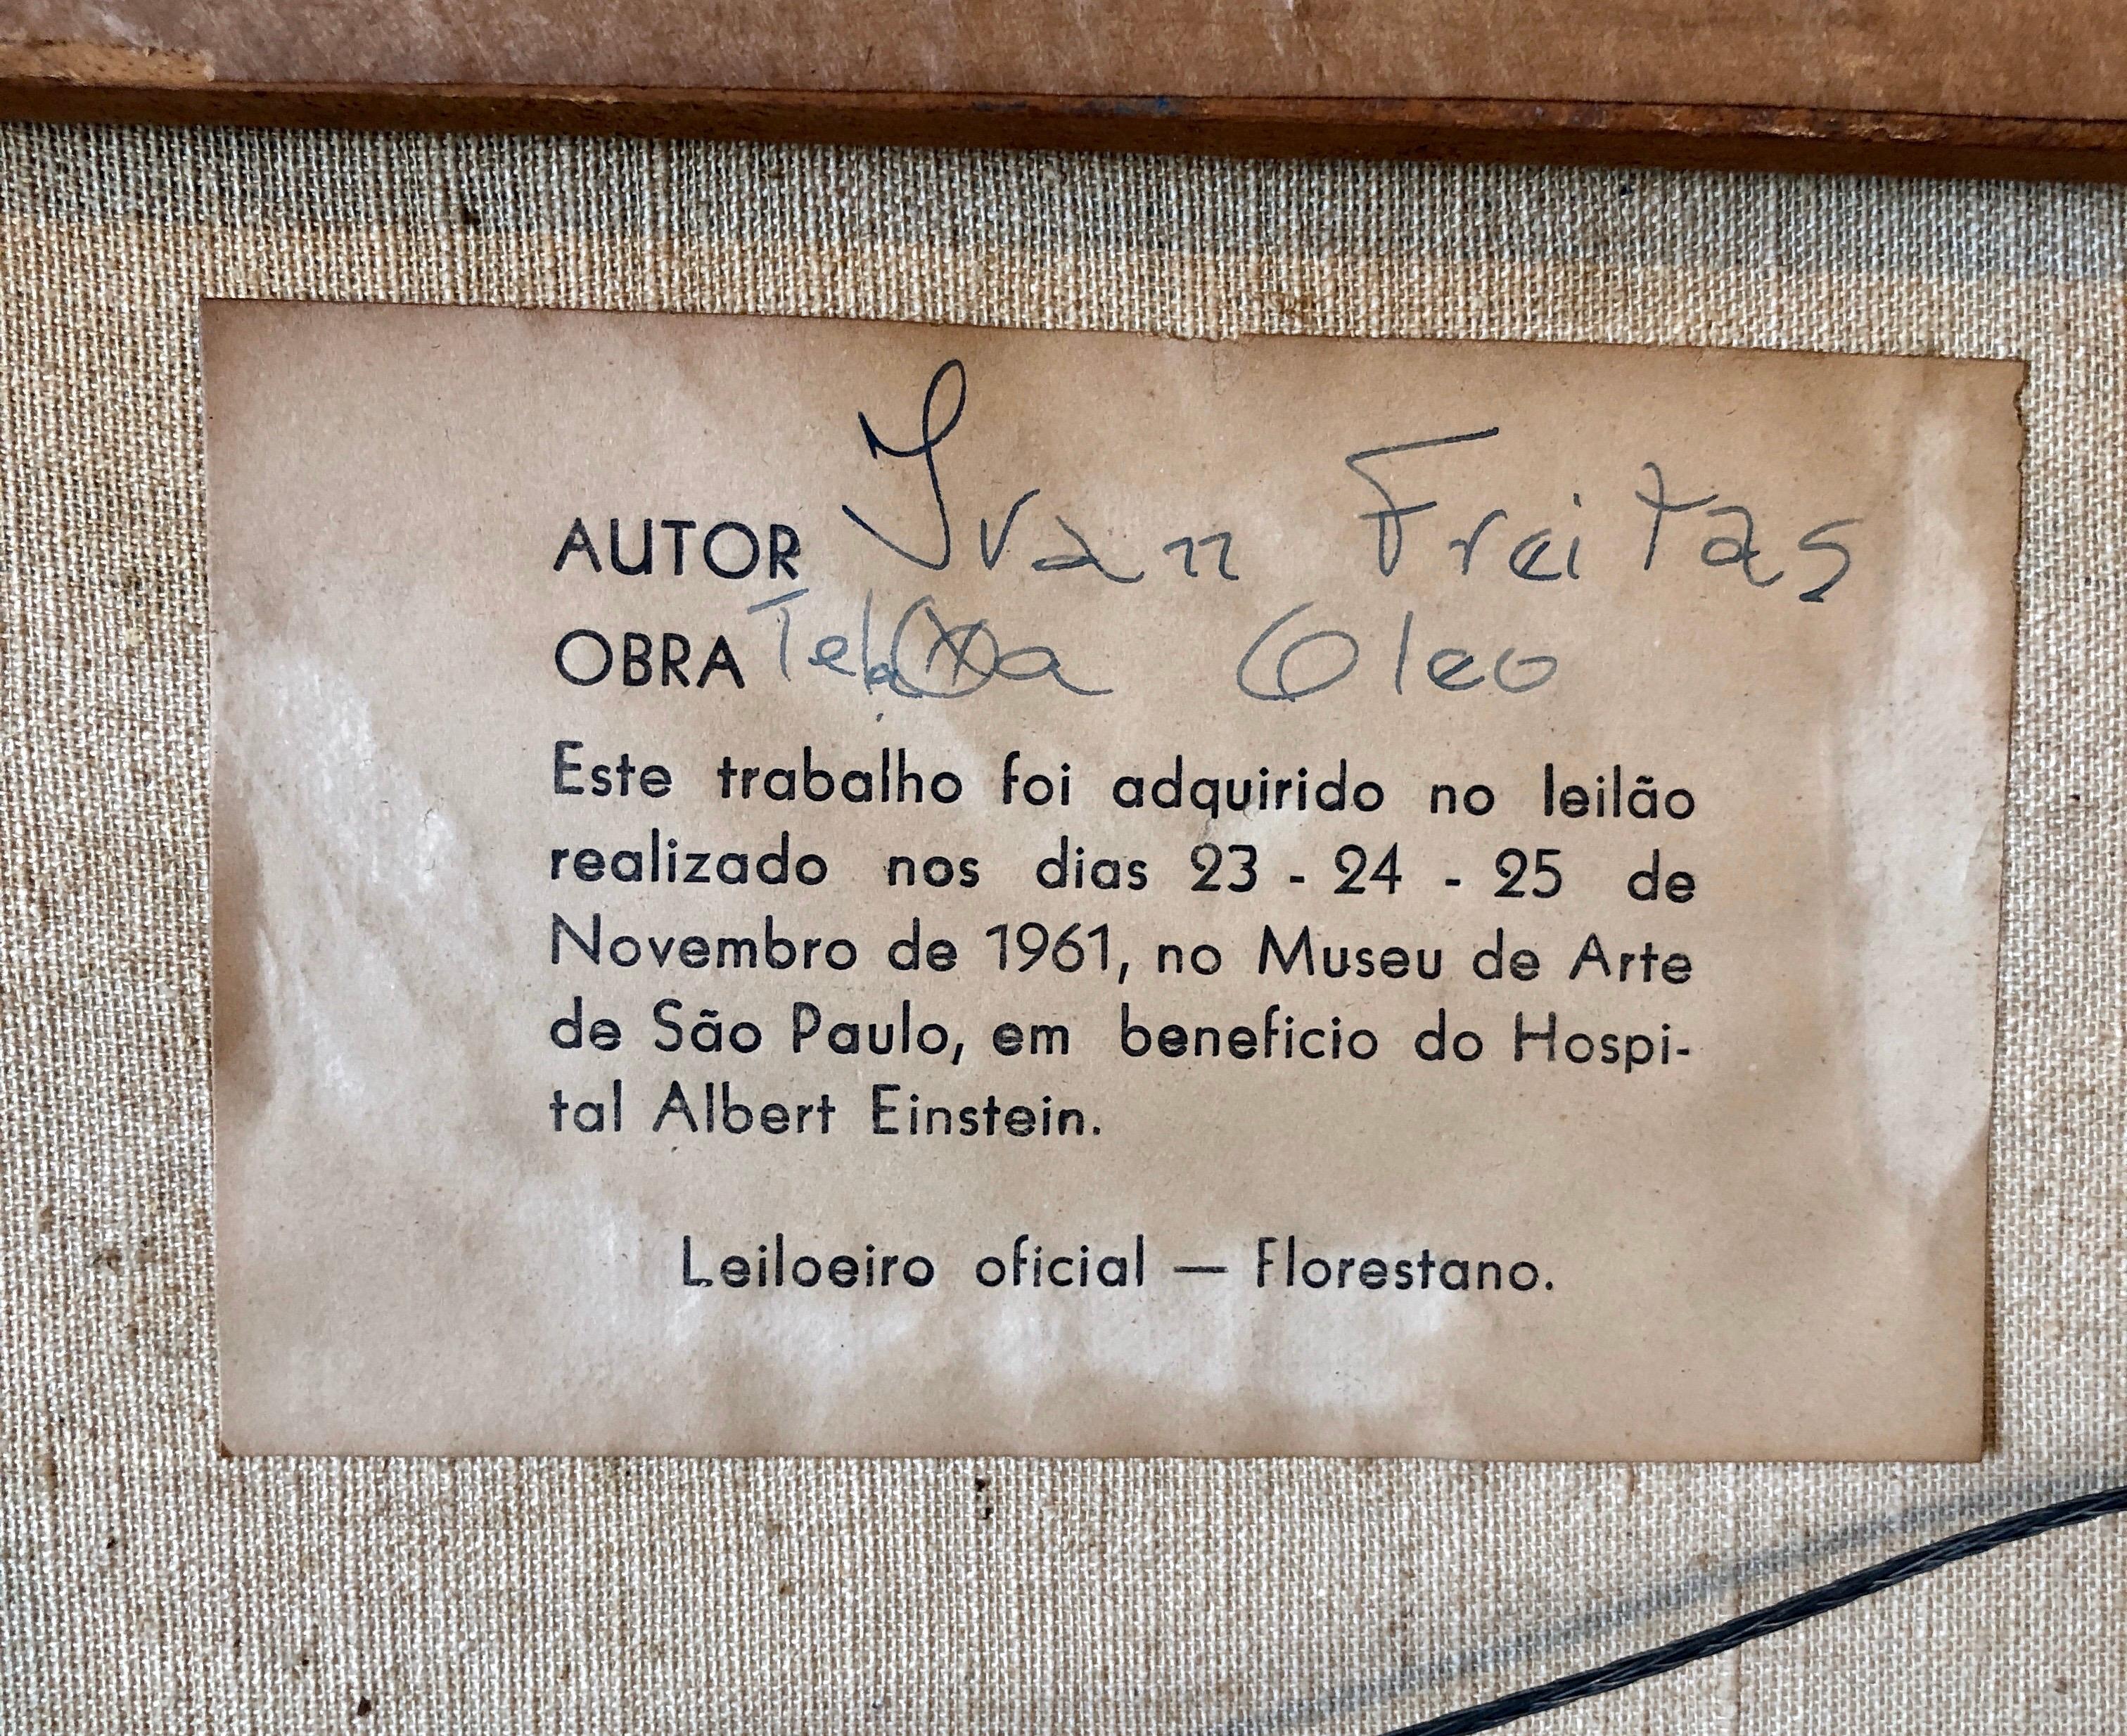 AUTOR Ivan Freitas
OBRA Tela a Oleo
Este trabalho foi adquirido no leilão
realizado nos dias 23 - 24 - 25 de
Novembro de 1961, no Museu de Arte
de São Paulo, em beneficio do Hospi-
tal Albert Einstein.
Leiloeiro oficial — Florestano.